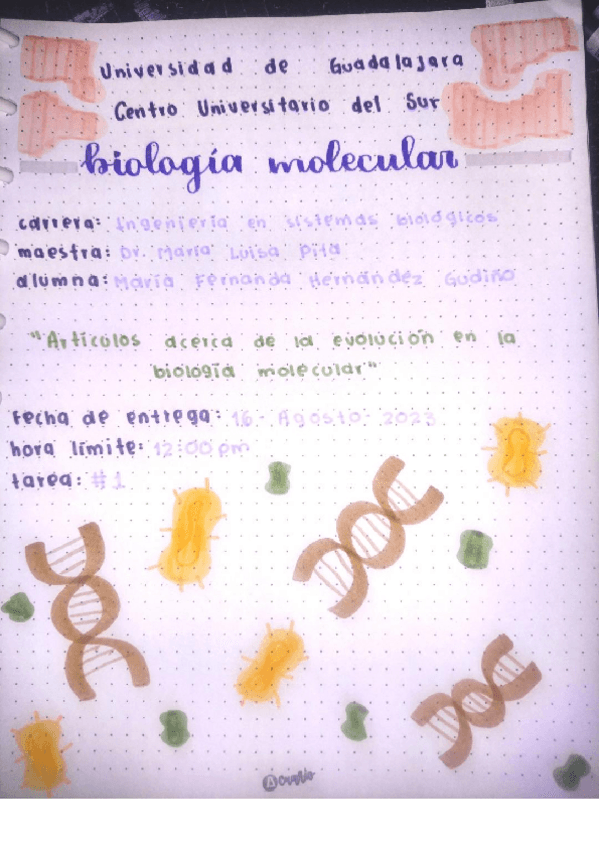 Universidad de Guadalajara
Centro Universitario del Sur
biología molecular
carrera: Ingeniería en sistemas biológicos
maestra: Dr. María Luisa Pita
alumna: María Fernanda Hernández Gudiño
"Artículos acerca de la evolución en la
biología molecular"
Fecha de entrega: 16 - Agosto - 2023
hora límite: 12:00 pm
tarea: #1